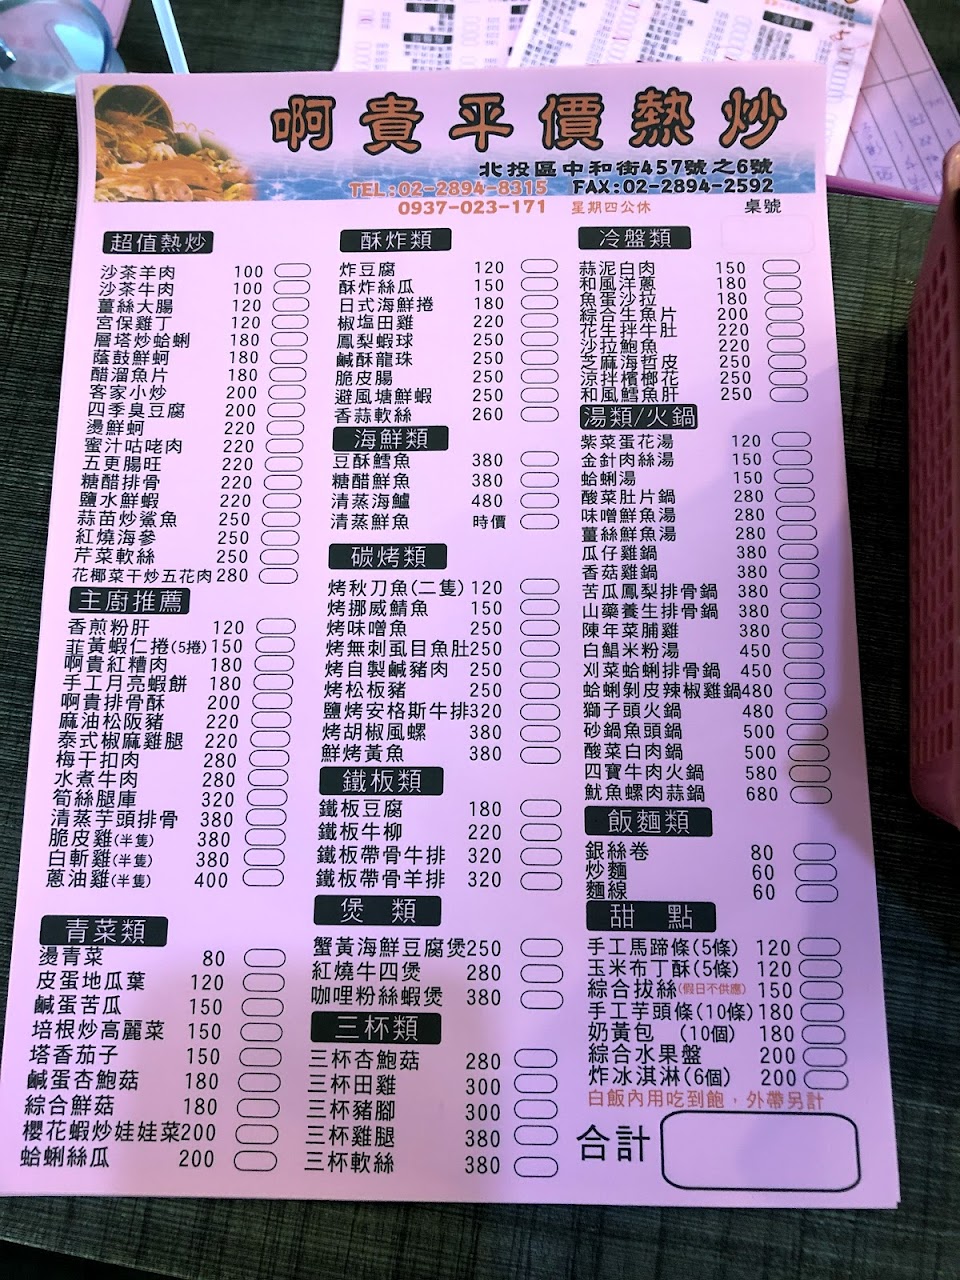 啊貴平價熱炒
北投區中和街457號之6號
TEL:02-2894-8315 FAX:02-2894-2592
0937-023-171 星期四公休 桌號
超值熱炒
沙茶羊肉 100
沙茶牛肉 100
薑絲大腸 120
宮保雞丁 120
層塔炒蛤蜊 180
蔭鼓鮮蚵 180
醋溜魚片 180
客家小炒 200
四季臭豆腐 200
燙鮮蚵 220
蜜汁咕咾肉 220
五更腸旺 220
糖醋排骨 220
鹽水鮮蝦 220
蒜苗炒鯊魚 250
紅燒海參 250
芹菜軟絲 250
花椰菜干炒五花肉 280
主廚推薦
香煎粉肝 120
韮黃蝦仁捲(5捲) 150
啊貴紅糟肉 180
手工月亮蝦餅 180
啊貴排骨酥 200
麻油松阪豬 220
泰式椒麻雞腿 220
梅干扣肉 280
水煮牛肉 280
筍絲腿庫 320
清蒸芋頭排骨 380
脆皮雞(半隻) 380
白斬雞(半隻) 380
蔥油雞(半隻) 400
青菜類
燙青菜 80
皮蛋地瓜葉 120
鹹蛋苦瓜 150
培根炒高麗菜 150
塔香茄子 150
鹹蛋杏鮑菇 180
綜合鮮菇 180
櫻花蝦炒娃娃菜 200
蛤蜊絲瓜 200
酥炸類
炸豆腐 120
酥炸絲瓜 150
日式海鮮捲 180
椒塩田雞 220
鳳梨蝦球 250
鹹酥龍珠 250
脆皮腸 250
避風塘鮮蝦 250
香蒜軟絲 260
海鮮類
豆酥鱈魚 380
糖醋鮮魚 380
清蒸海鱸 480
清蒸鮮魚 時價
碳烤類
烤秋刀魚(二隻) 120
烤挪威鯖魚 150
烤味噌魚 250
烤無刺虱目魚肚 250
烤自製鹹豬肉 250
烤松板豬 250
鹽烤安格斯牛排 320
烤胡椒風螺 380
鮮烤黃魚 380
鐵板類
鐵板豆腐 180
鐵板牛柳 220
鐵板帶骨牛排 320
鐵板帶骨羊排 320
煲 類
蟹黃海鮮豆腐煲 250
紅燒牛四煲 280
咖哩粉絲蝦煲 380
三杯類
三杯杏鮑菇 280
三杯田雞 300
三杯豬腳 300
三杯雞腿 380
三杯軟絲 380
冷盤類
蒜泥白肉 150
和風洋蔥 180
魚蛋沙拉 180
綜合生魚片 200
花生拌牛肚 220
沙拉鮑魚 220
芝麻海哲皮 250
涼拌檳榔花 250
和風鱈魚肝 250
湯類/火鍋
紫菜蛋花湯 120
金針肉絲湯 150
蛤蜊湯 150
酸菜肚片鍋 280
味噌鮮魚湯 280
薑絲鮮魚湯 280
瓜仔雞鍋 380
香菇雞鍋 380
苦瓜鳳梨排骨鍋 380
山藥養生排骨鍋 380
陳年菜脯雞 380
白鯧米粉湯 450
刈菜蛤蜊排骨鍋 450
蛤蜊剝皮辣椒雞鍋 480
獅子頭火鍋 480
砂鍋魚頭鍋 500
酸菜白肉鍋 500
四寶牛肉火鍋 580
魷魚螺肉蒜鍋 680
飯麵類
銀絲卷 80
炒麵 60
麵線 60
甜 點
手工馬蹄條(5條) 120
玉米布丁酥(5條) 120
綜合拔絲(假日不供應) 150
手工芋頭條(10條) 180
奶黃包 (10個) 180
綜合水果盤 200
炸冰淇淋(6個) 200
白飯內用吃到飽，外帶另計
合計